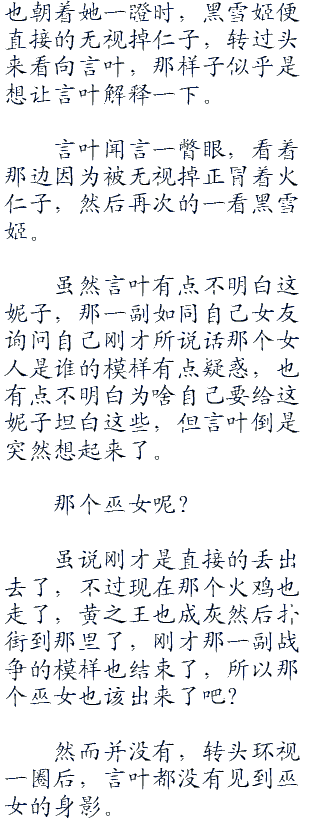 也朝着她一瞪时，黑雪姬便
直接的无视掉仁子，转过头
来看向言叶，那样子似乎是
想让言叶解释一下。
言叶闻言一瞥眼，看着
那边因为被无视掉正冒着火
仁子，然后再次的一看黑雪
姬。
虽然言叶有点不明白这
妮子，那一副如同自己女友
询问自己刚才所说话那个女
人是谁的模样有点疑惑，也
有点不明白为啥自己要给这
妮子坦白这些，但言叶倒是
突然想起来了。
那个巫女呢？
虽说刚才是直接的丢出
去了，不过现在那个火鸡也
走了，黄之王也成灰然后扑
街到那里了，刚才那一副战
争的模样也结束了，所以那
个巫女也该出来了吧？
然而并没有，转头环视
一圈后，言叶都没有见到巫
女的身影。